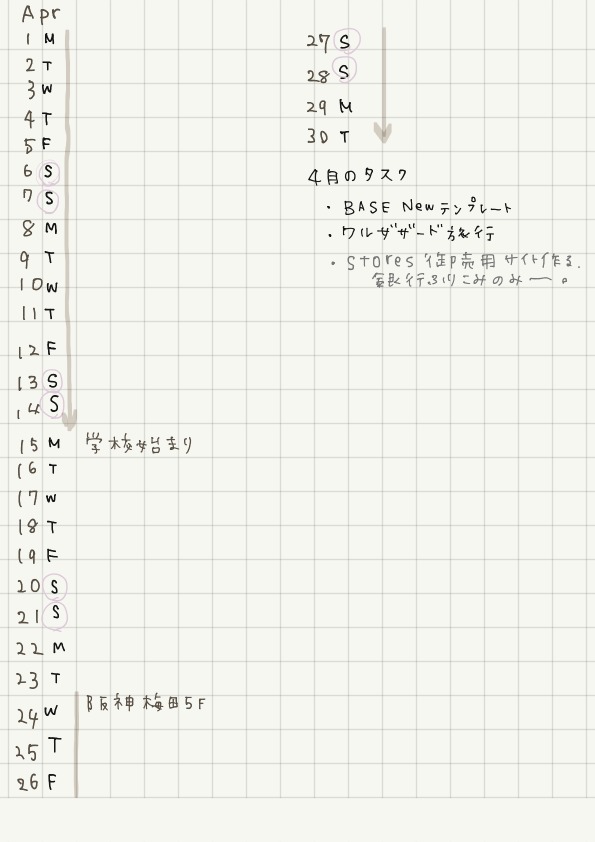 Apr
1 M
2 T
3 W
4 T
5 F
6 S
7 S
8 M
9 T
10 W
11 T
12 F
13 S
14 S
15 M 学校始まり
16 T
17 W
18 T
19 F
20 S
21 S
22 M
23 T
24 W 阪神梅田5F
25 T
26 F
27 S
28 S
29 M
30 T
4月のタスク
・BASE Newテンプレート
・ワルザザード旅行
・Stores 御売用サイト作る.
銀行ふりこみのみー。